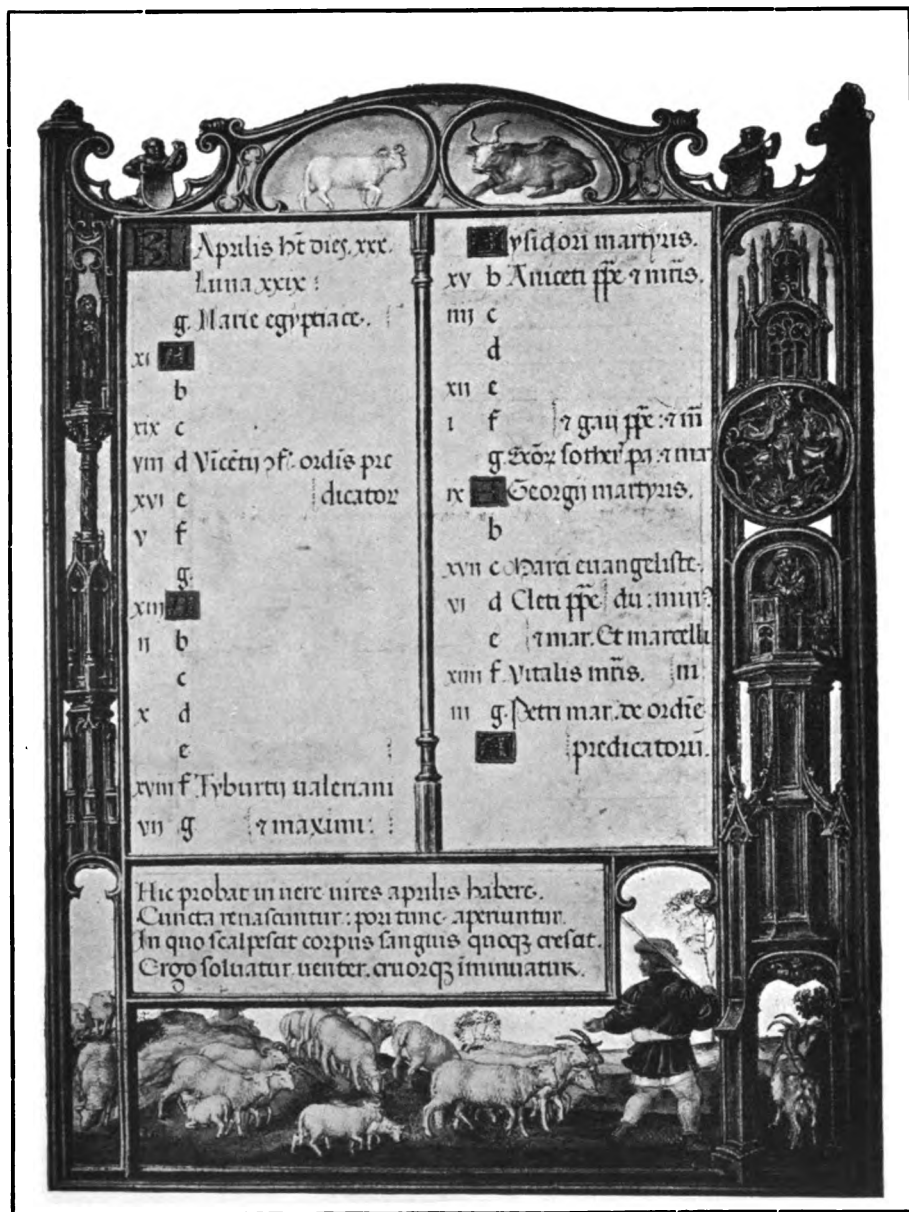 KL Aprilis ht dies. xxx.
Luna xxix:
g. Marie egyptiace.
xi A
b
xix c
viii d Vicētij ɔf. ordīs pre
xvi e dicator
v f
g.
xiii A
ij b
c
x d
e
xviii f Tyburtij ualeriani
vij g ⁊ maximi:
A ysidori martyris.
xv b Aniceti ppe ⁊ mr̄is.
iiij c
d
xij e
i f ⁊ gaij ppe: ⁊ m̄
g. sother pa: ⁊ mar
ix A Georgii martyris.
b
xvij c Marci euangeliste.
vi d Cleti ppe
e ⁊ mar. Et marcelli
xiiii f. Vitalis mr̄is. m
iij g. Petri mar. de ordīe
A predicatorū.
Hic probat in uere uires aprilis habere.
Cuncta renascuntur: pori tunc aperiuntur.
In quo scalpescit corpus sanguis quoqꝫ crescit.
Ergo soluatur uenter. cruorqꝫ iminuatur.